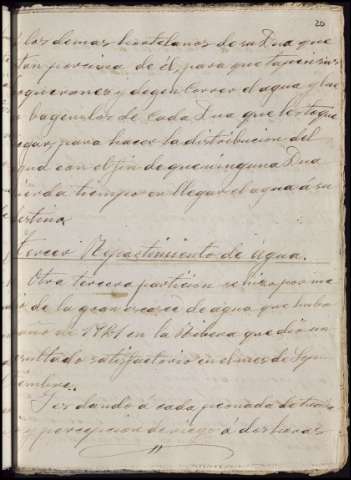 20
los demas hortelanos de su Dua que
tan porcima de él, para que tapen sus
oquerones y degen correr el agua y los
bagen los de cada Dua que les toque
egar, para hacer la distribucion del
gua con el fin de que ninguna Dua
ierda tiempo en llegar el agua á su
estino.
Tercer Repartimiento de agua.
Otra tercera particion se hizo por me
de la gran escasez de agua que hubo
año de 1841 en la Ribera que dió un
esultado satisfactorio en el mes de Sep
embre.
Ies dando á cada peonada de tierra
y percepcion de riego á deshoras